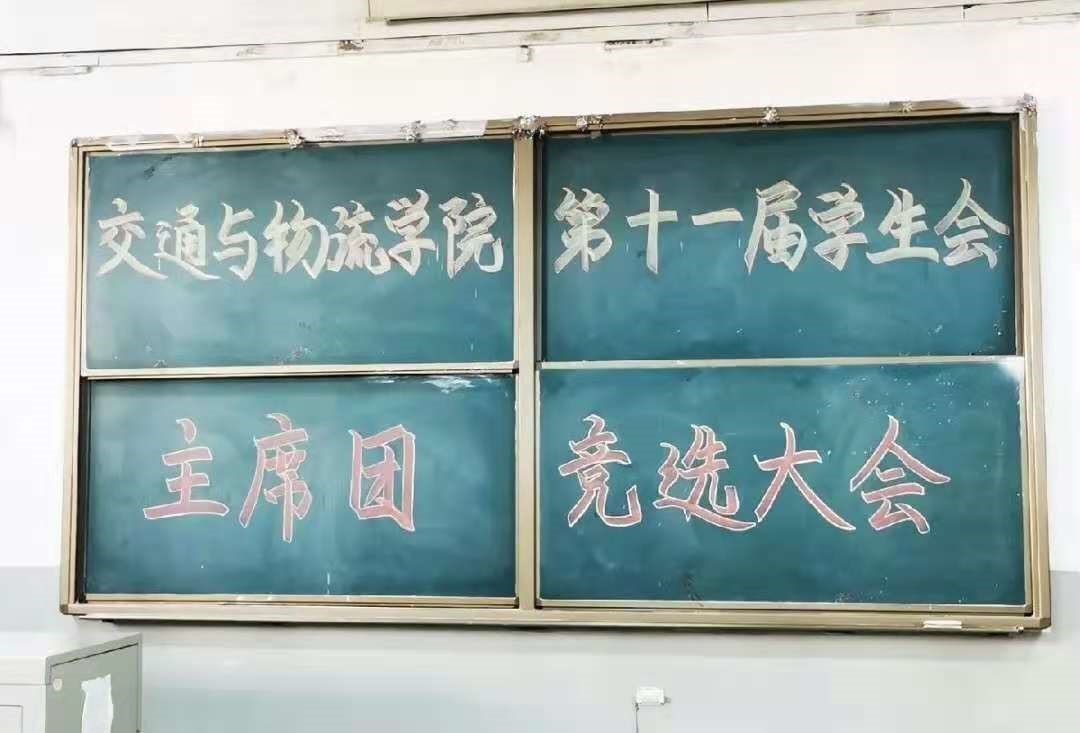 交通与物流学院 第十一届学生会
主席团 竞选大会